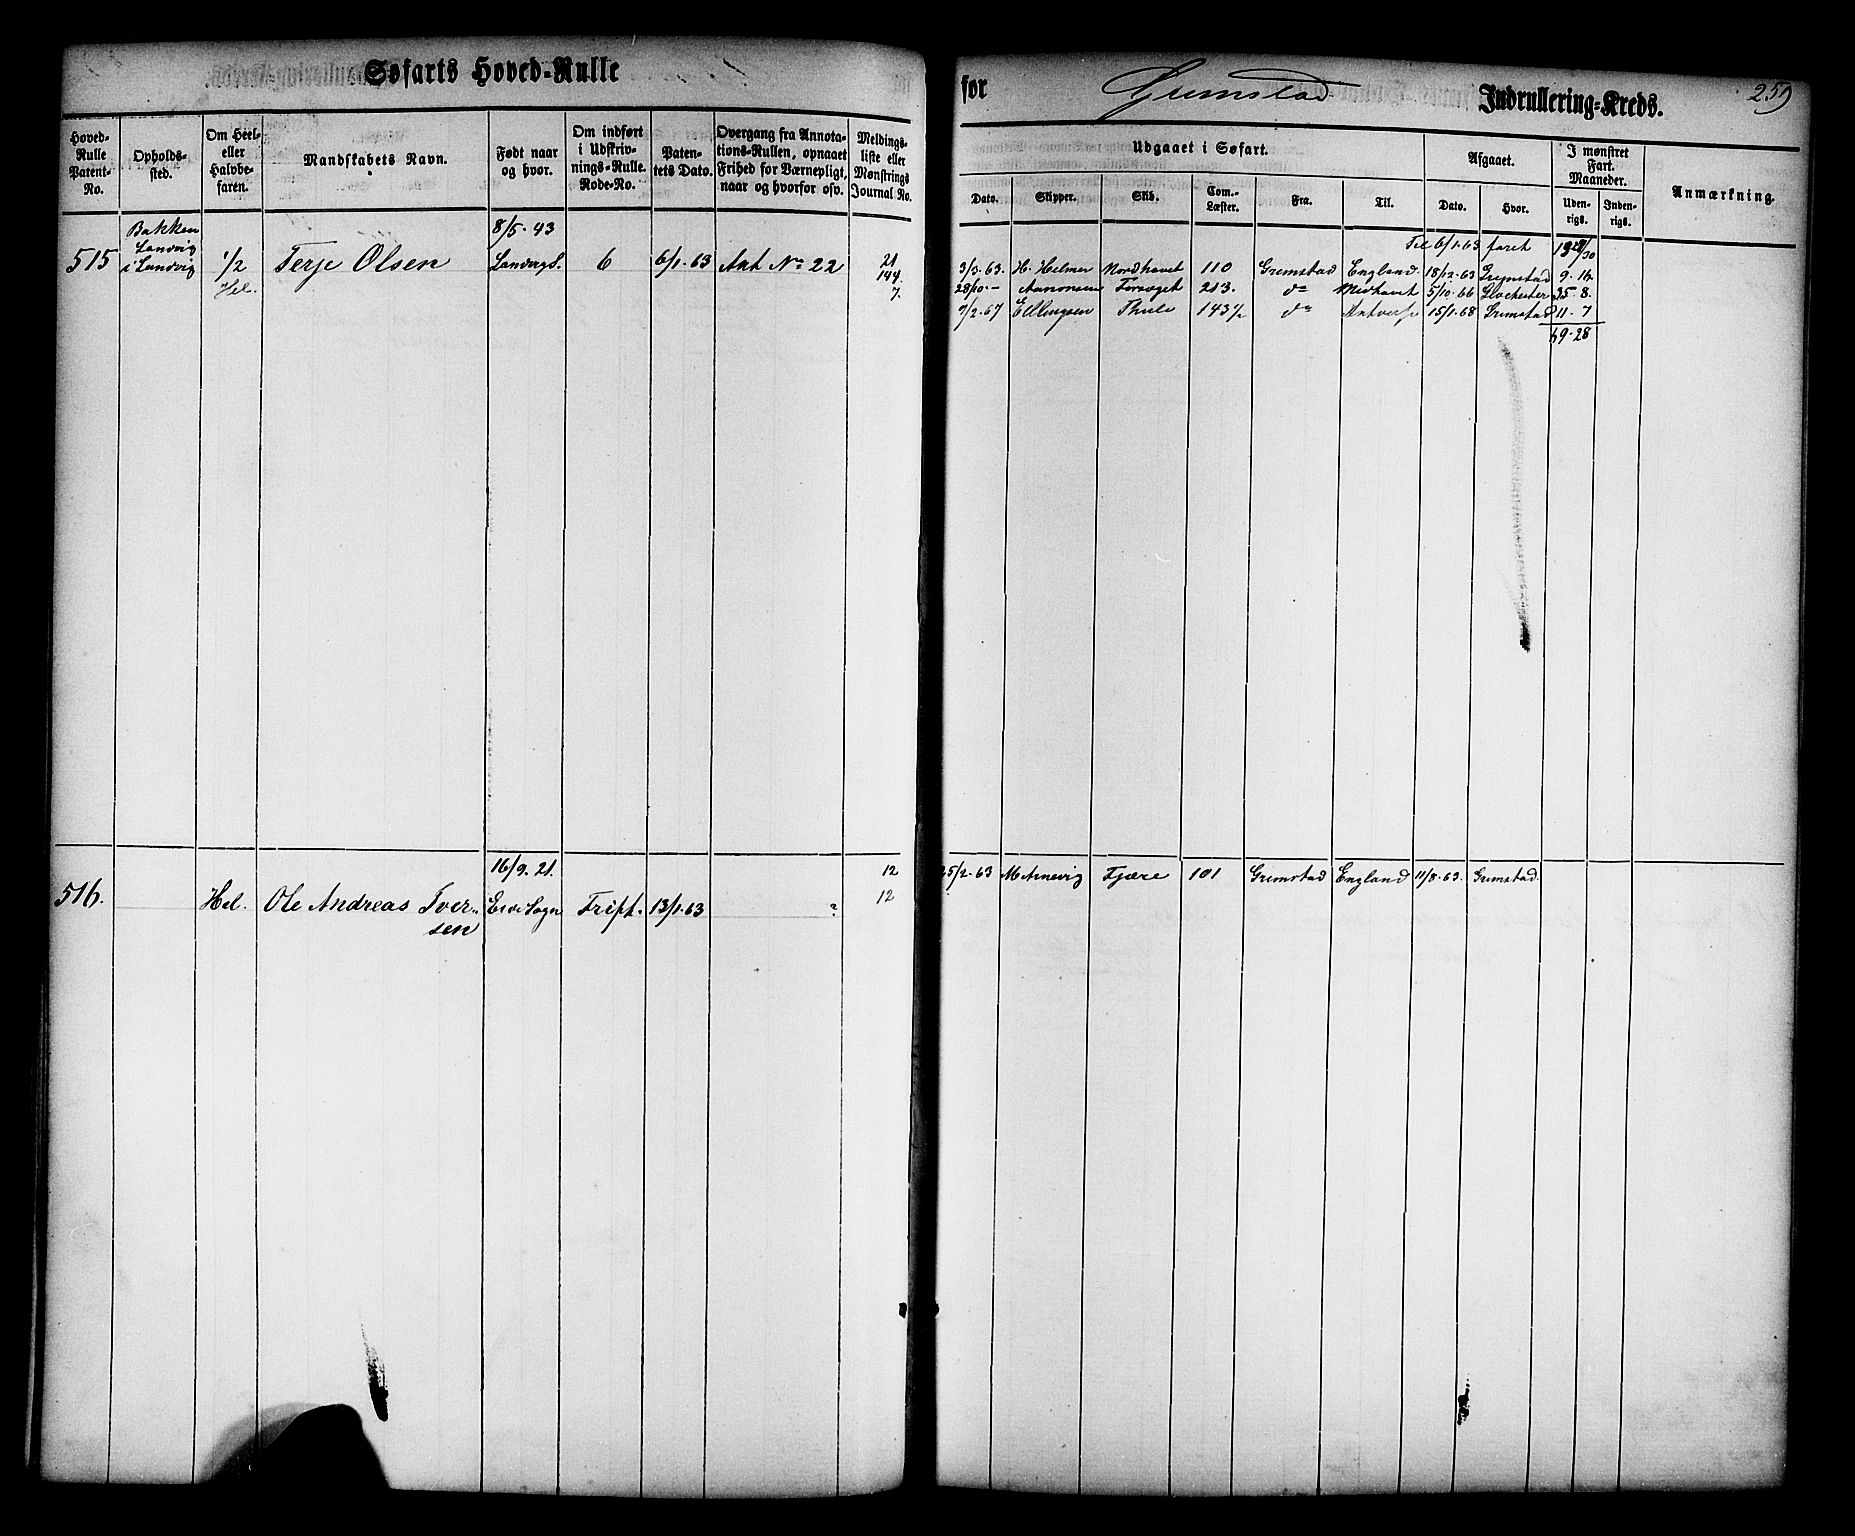 Søfarts Hoved-Rulle
for Grimstad Indrullering-Kreds. 259
Hoved-Rulle Patent-No.
Opholds-sted.
Om Heel- eller Halvbe-faren.
Mandskabets Navn.
Født naar og hvor.
Om indført i Udskriv-nings-Rulle. Rode-No.
Paten-tets Dato.
Overgang fra Annota-tions-Rullen, opnaaet Frihed for Værnepligt, naar og hvorfor osv.
Meldings-liste eller Mønstrings Journal No.
Udgaaet i Søfart.
Afgaaet.
I mønstret Fart. Maaneder.
Anmærkning.
Dato. Skipper. Skib. Com.-Læster. Fra. Til. Dato. Hvor. Uden-rigs. Inden-rigs.
Bakken 8/5.43
Landvig Til 6/1.63 faret
515 i Landvig 1/2 Terje Olsen Landvigs. 6 6/1.63 Aat No 22 21
Hel. 144.
7.
3/3.63. H. Helmer Nordhavet 110 Grimstad England 18/12.63 Grimstad 9.16
28/10.- Aanonsen Forsøget 213. do Midhavet 5/10.66 Glochester 35.8.
7/2.67 Ellingsen Thule 143 1/2 do Antverp 15/1.68 Grimstad 11.7
69.28
16/9.21. 12
25/2.63 M Arnevig Fjære 101 Grimstad England 11/8.63. Grimstad.
516. Hel. Ole Andreas Iver-sen Eide Sogn Frift. 13/1.63 ? 12